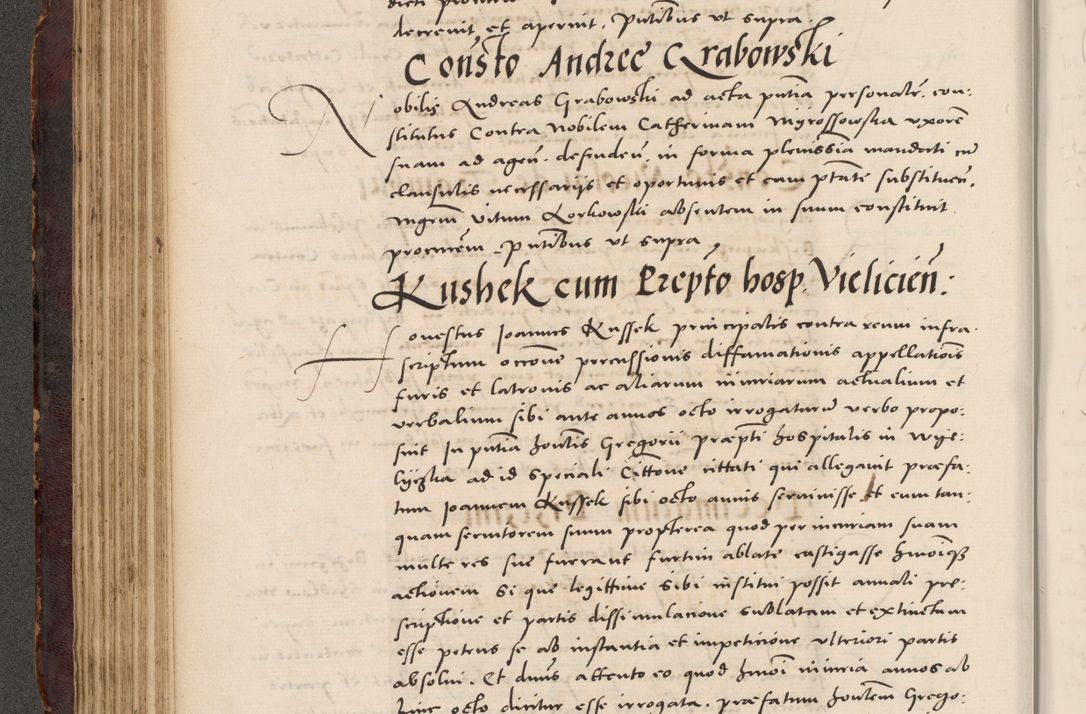 decrevit et aperuit. Pñtibus ut supra.
Consto Andree Grabowski
Nobilis Andreas Grabowski ad acta pñtia personalr. con:
stitutus Contra Nobilem Catherinam Mijrossowska uxorē
suam ad agen. defenden. in forma plenissia mandati cū
clausulis necessarijs et oportunis et cum ptate substituen.
Mgrum Vitum Korkowski absentem in suum constituit
procurem. pñtibus ut supra
Kushek cum Prepto hosp. Vielicień:
Honestus Joannes Kussek principalis contra reum infra
scriptum occone percussionis diffamationis appellationis
furis et latronis ac aliarum iniuriarum actualium et
verbalium sibi ante annos octo irrogatarū verbo propo:
suit In pñtia honts Gregorii præpti hospitalis in Wye:
lyczka ad id speciali Cittone cittati que allegavit præfa:
tum Joannem Kussek sibi octo annis servivisse et eum tan:
quam servitorem suum propterea quod per incuriam suam
multe res sue fuerant furtim ablate castigasse hmoiqz
actionem si que legittime sibi institui possit annali pre:
scriptione et partis dissimulacione sublatam et extinctam
esse petens se ab instantia et impeticione ulteriori partis
absolvi. Et dnus attento eo quod hmoi iniuria annos ab
hinc octo dicitur esse irrogata. præfatum hontem Grego: